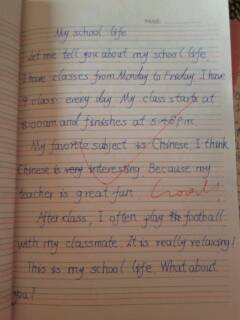 My school life
Let me tell you about my school life
I have classes from Monday to Friday. I have
9 class every day. My class starts at
8:00am and finishes at 5:45pm.
My favorite subject is Chinese. I think
Chinese is very interesting. Because my
teacher is great fun. Good!
After class, I often play the football
with my classmate. It is really relaxing!
This is my school life. What about
you?